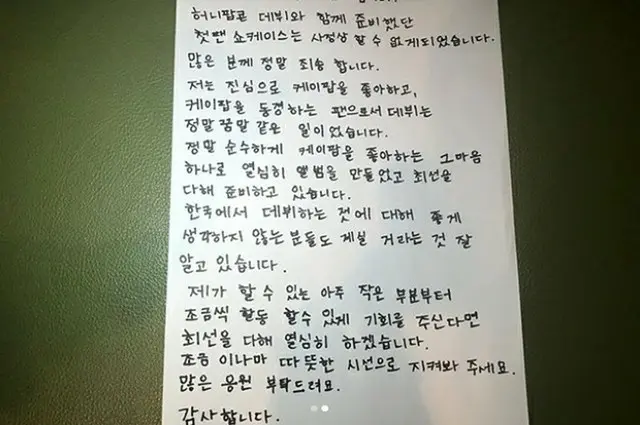 허니팝콘 데뷔와 함께 준비했던
첫팬 쇼케이스는 사정상 할 수 없게되었습니다.
많은 분께 정말 죄송 합니다.
저는 진심으로 케이팝을 좋아하고,
케이팝을 동경하는 팬으로서 데뷔는
정말 꿈말 같은 일이 었습니다.
정말 순수하게 케이팝을 좋아하는 그마음
하나로 열심히 앨범을 만들었고 최선을
다해 준비하고 있습니다.
한국에서 데뷔하는 것에 대해 좋게
생각하지 않는 분들도 계실 거라는 것 잘
알고 있습니다.
제가 할 수 있는 아주 작은 부분부터
조금씩 활동 할수 있게 기회를 주신다면
최선을 다해 열심히 하겠습니다.
조금 이나마 따뜻한 시선으로 지켜봐 주세요.
많은 응원 부탁드려요.
감사합니다.